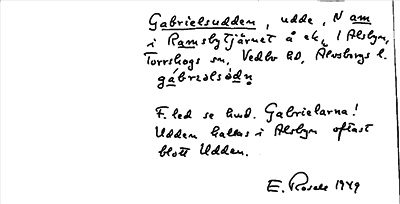 Gabrielsudden, udde, N am
i Ramsbytjärnet å ek. 1 Alsbyn,
Torrskogs sn, Vedbo hd, Älvsborgs l.
gábriəlsòdn̥
F. led se huvud. Gabrielarna!
Udden kallas i Alsbyn oftast
blott Udden.
E. Rosell 1949